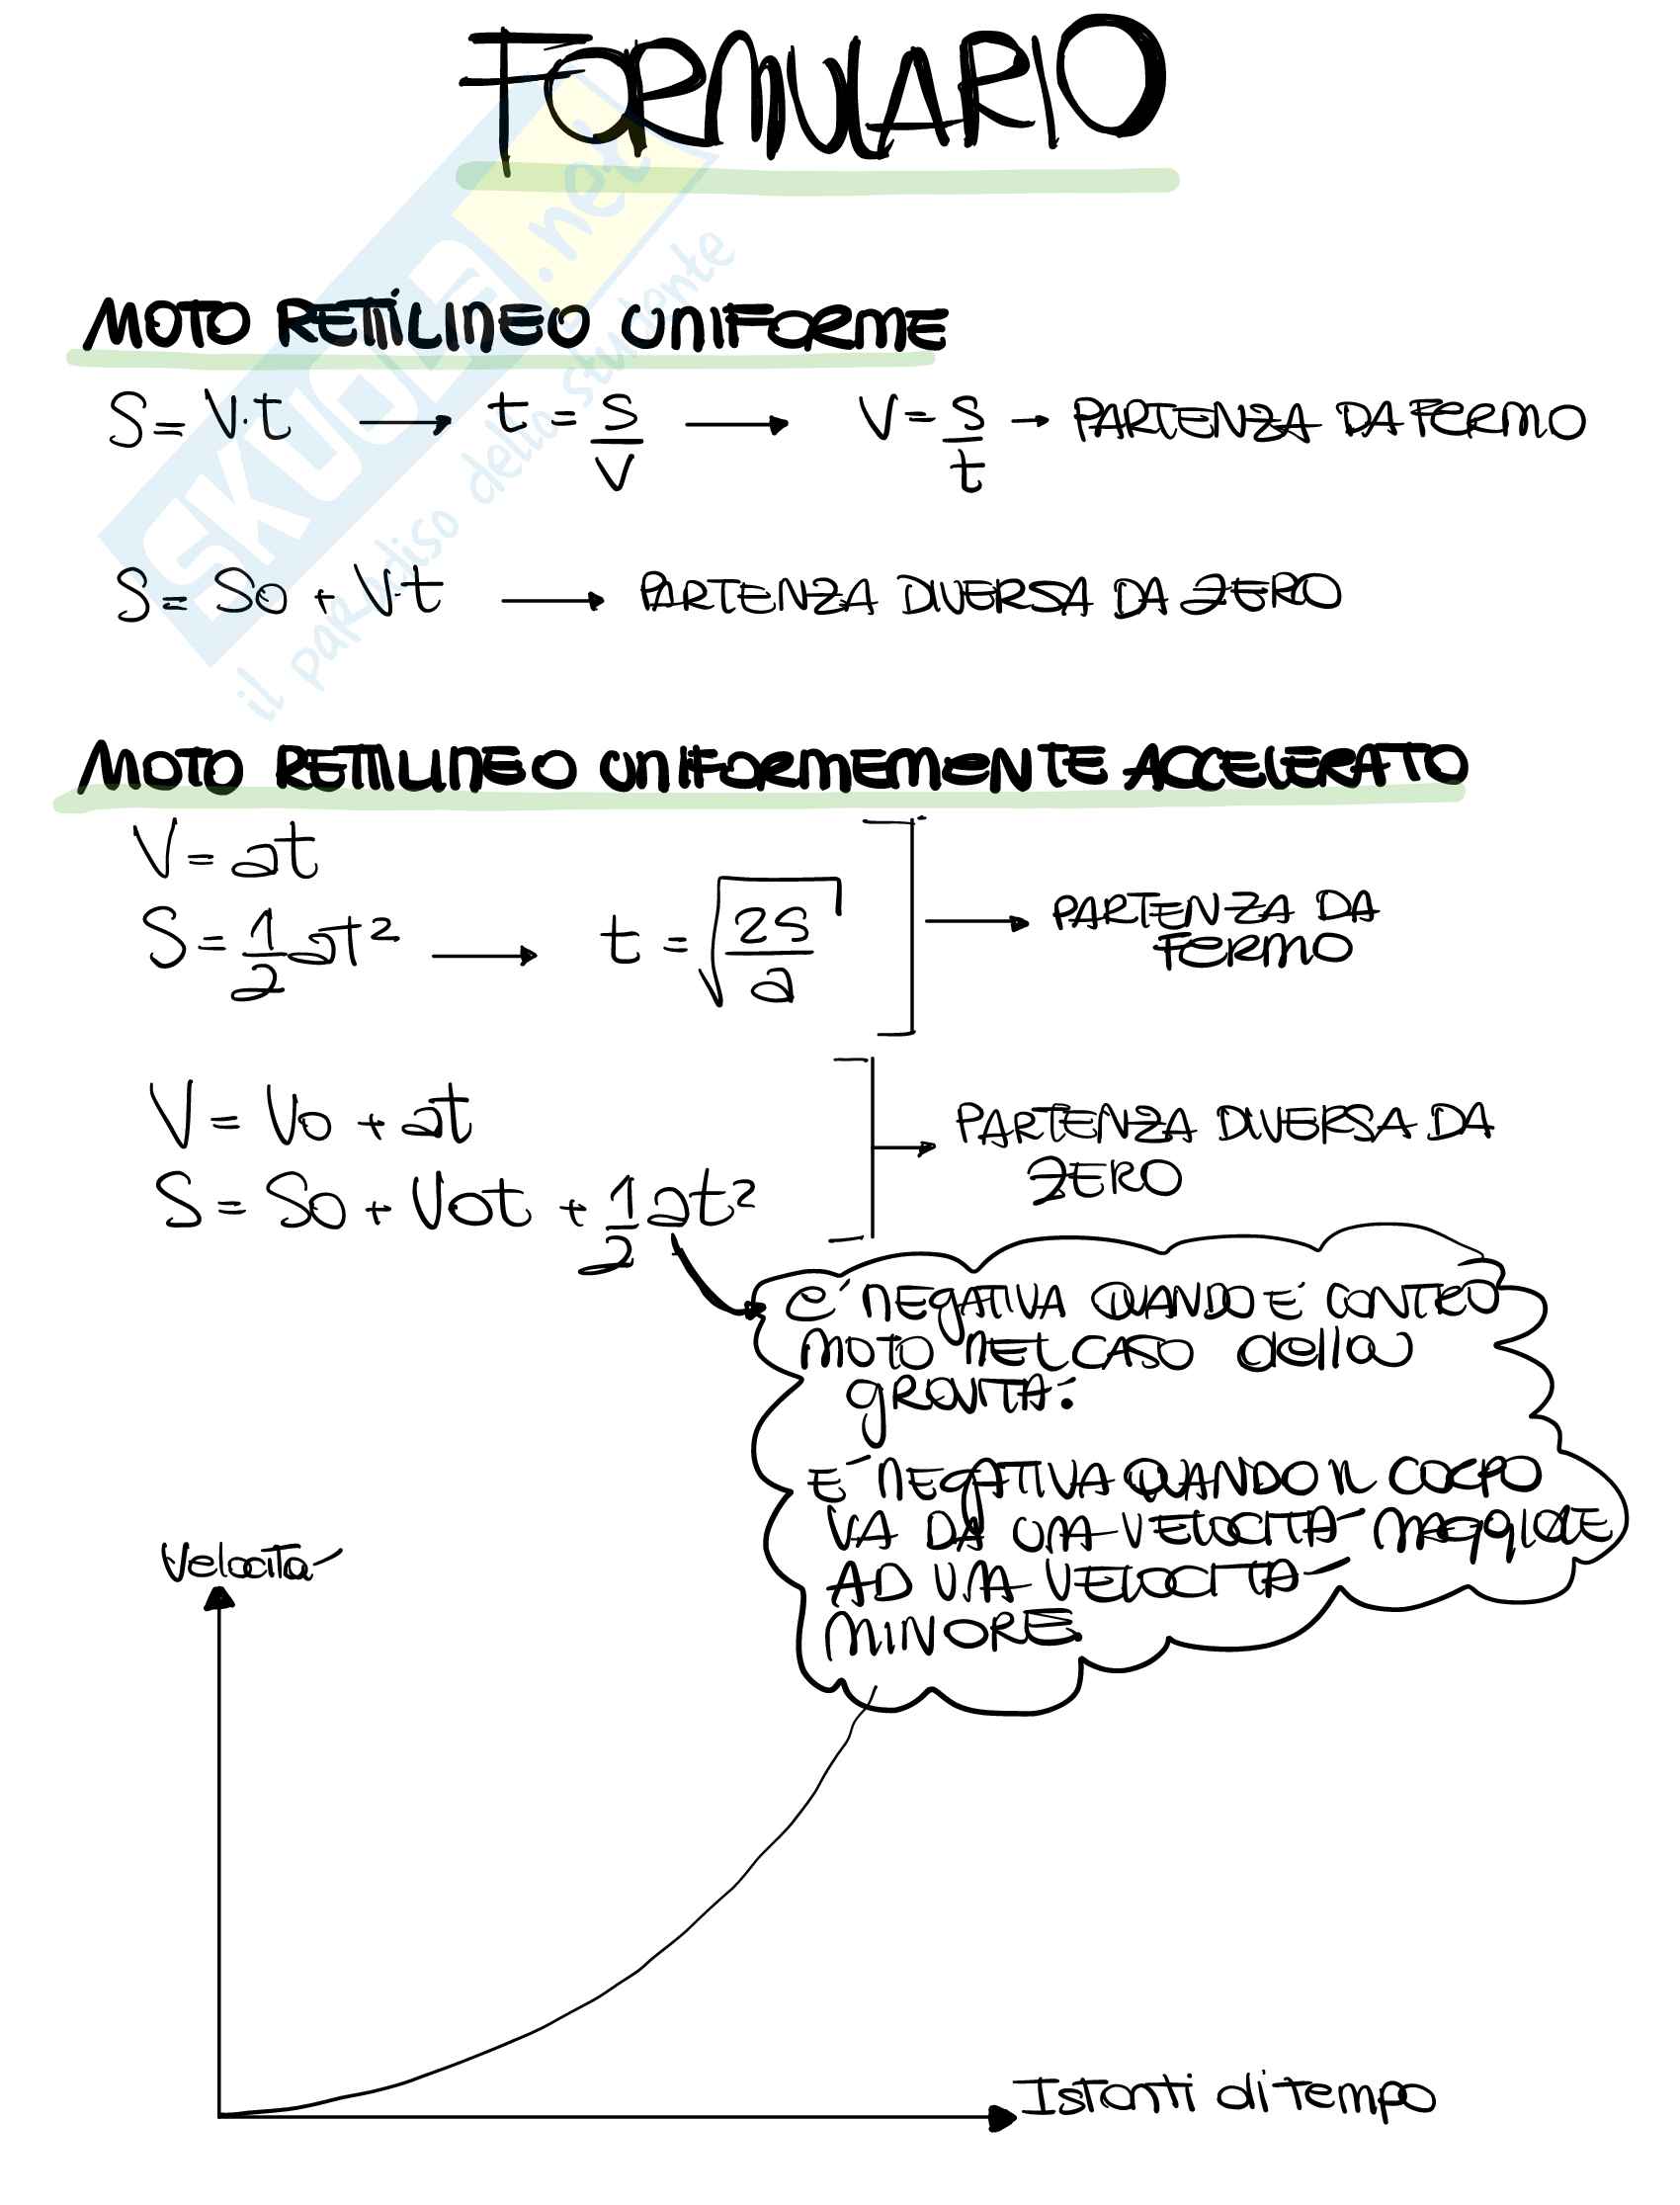 FORMULARIO
MOTO RETTILINEO UNIFORME
S = V·t → t = S/V → V = S/t → PARTENZA DA FERMO
S = S0 + V·t → PARTENZA DIVERSA DA ZERO
MOTO RETTILINEO UNIFORMEMENTE ACCELERATO
V = at
S = 1/2 at² → t = √(2S/a) → PARTENZA DA
FERMO
V = V0 + at
S = S0 + V0t + 1/2 at² → PARTENZA DIVERSA DA
ZERO
E' NEGATIVA QUANDO E' CONTRO
MOTO NEL CASO della
GRAVITA'.
E' NEGATIVA QUANDO IL CORPO
VA DA UNA VELOCITA' MAGGIORE
AD UNA VELOCITA'
MINORE.
Velocita'
Istanti di tempo
SKUOLA.net
il paradiso dello studente